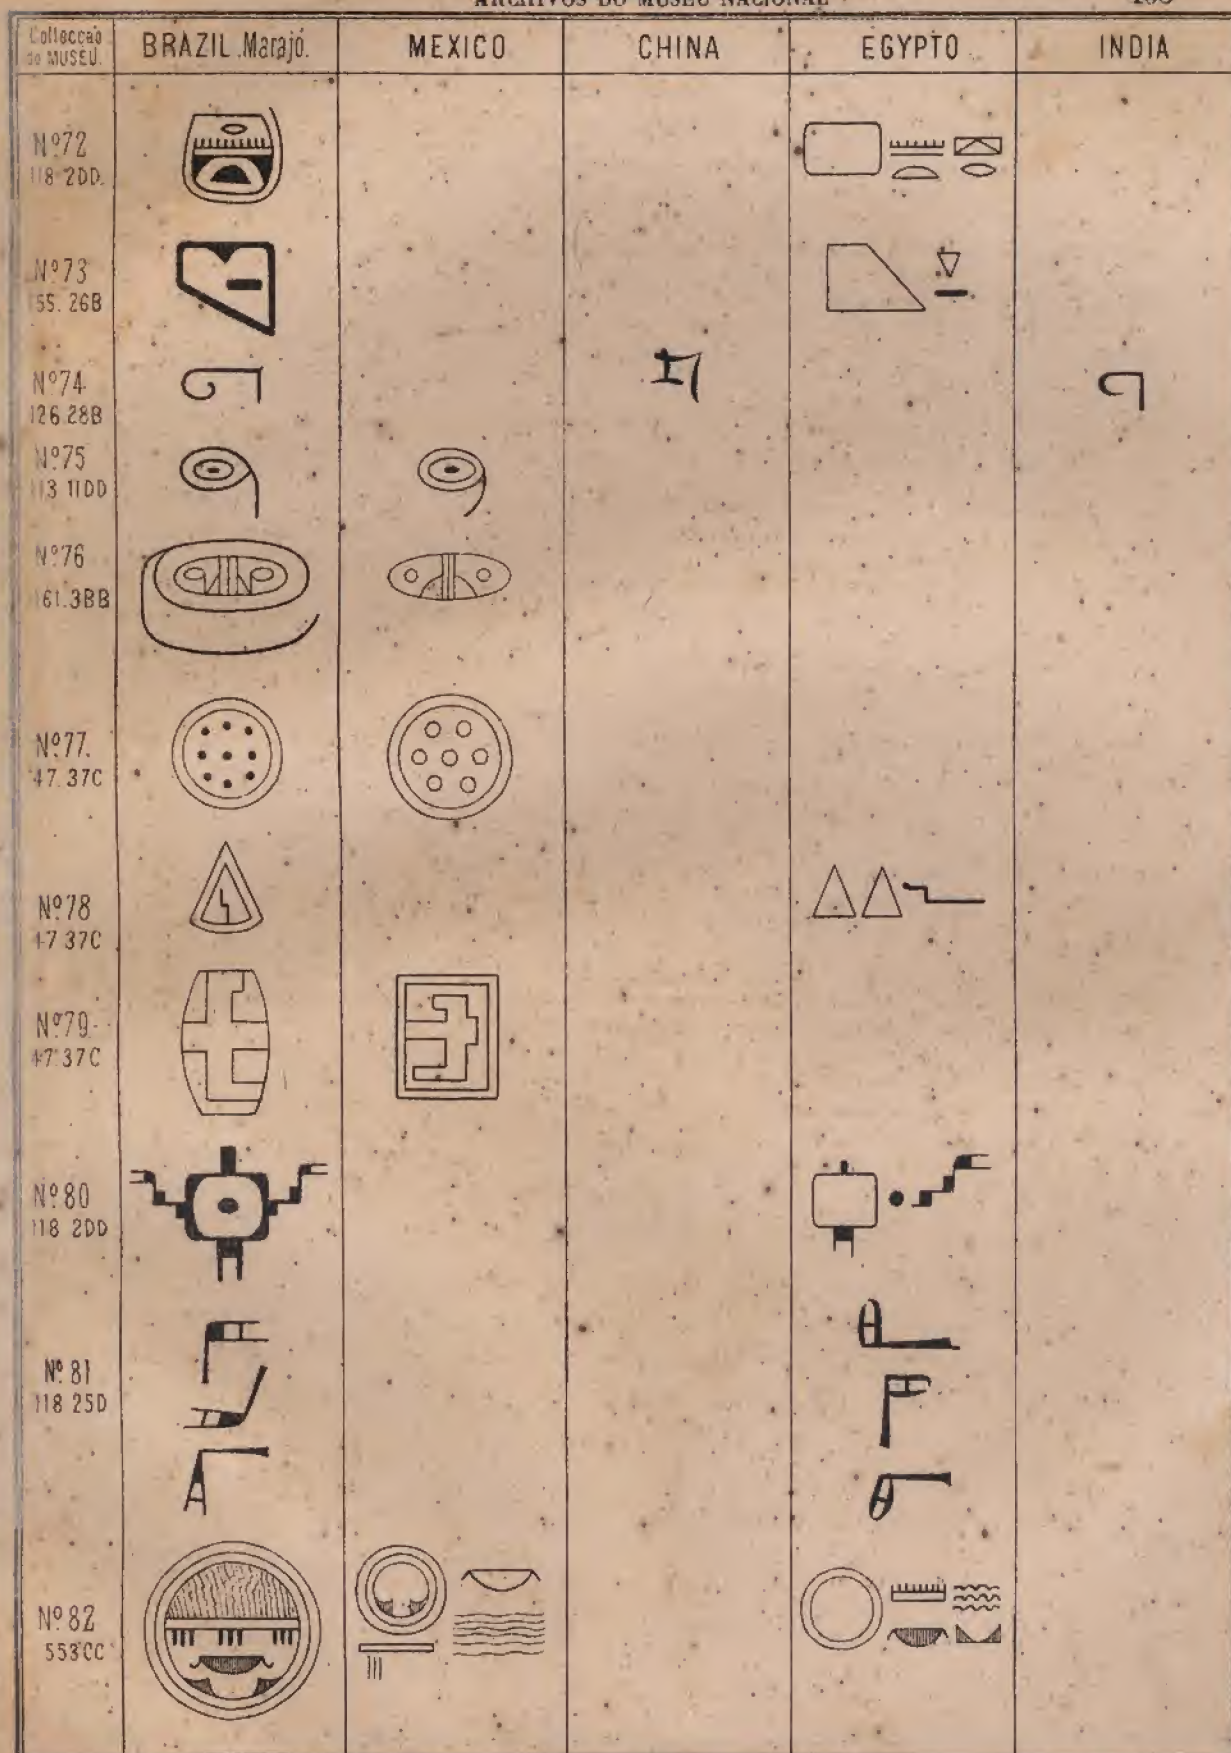 ARCHIVOS DO MUSEU NACIONAL
Collecção do MUSEU. BRAZIL.Marajó. MEXICO CHINA EGYPTO INDIA
Nº72
118 2DD.
Nº73
55. 26B
Nº74
126.28B
Nº75
113 11DD
Nº76
161.3BB
Nº77.
47.37C
Nº78
47 37C
Nº79
47 37C
Nº80
118 2DD
Nº 81
118 25D
Nº 82
553 CC